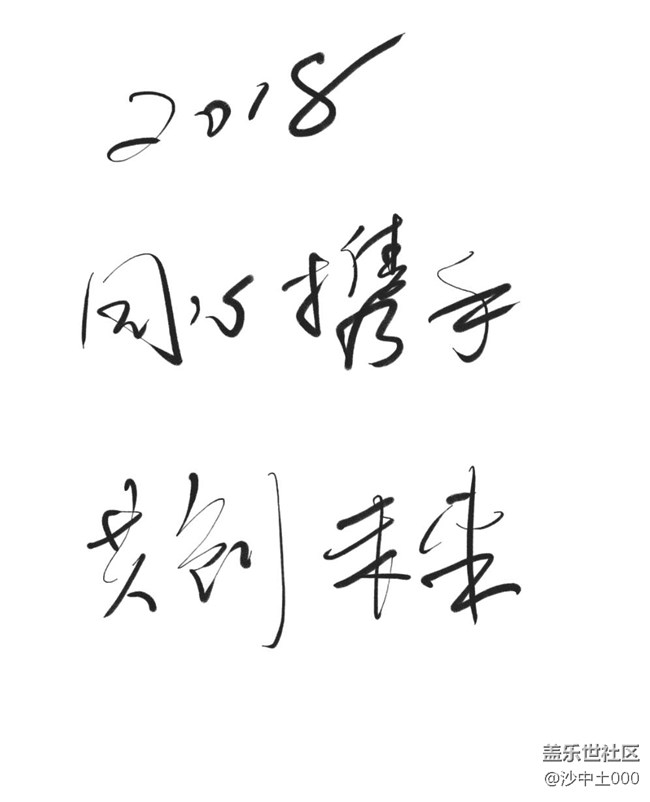 2018
同心携手
共创未来
盖乐世社区
@沙中土000